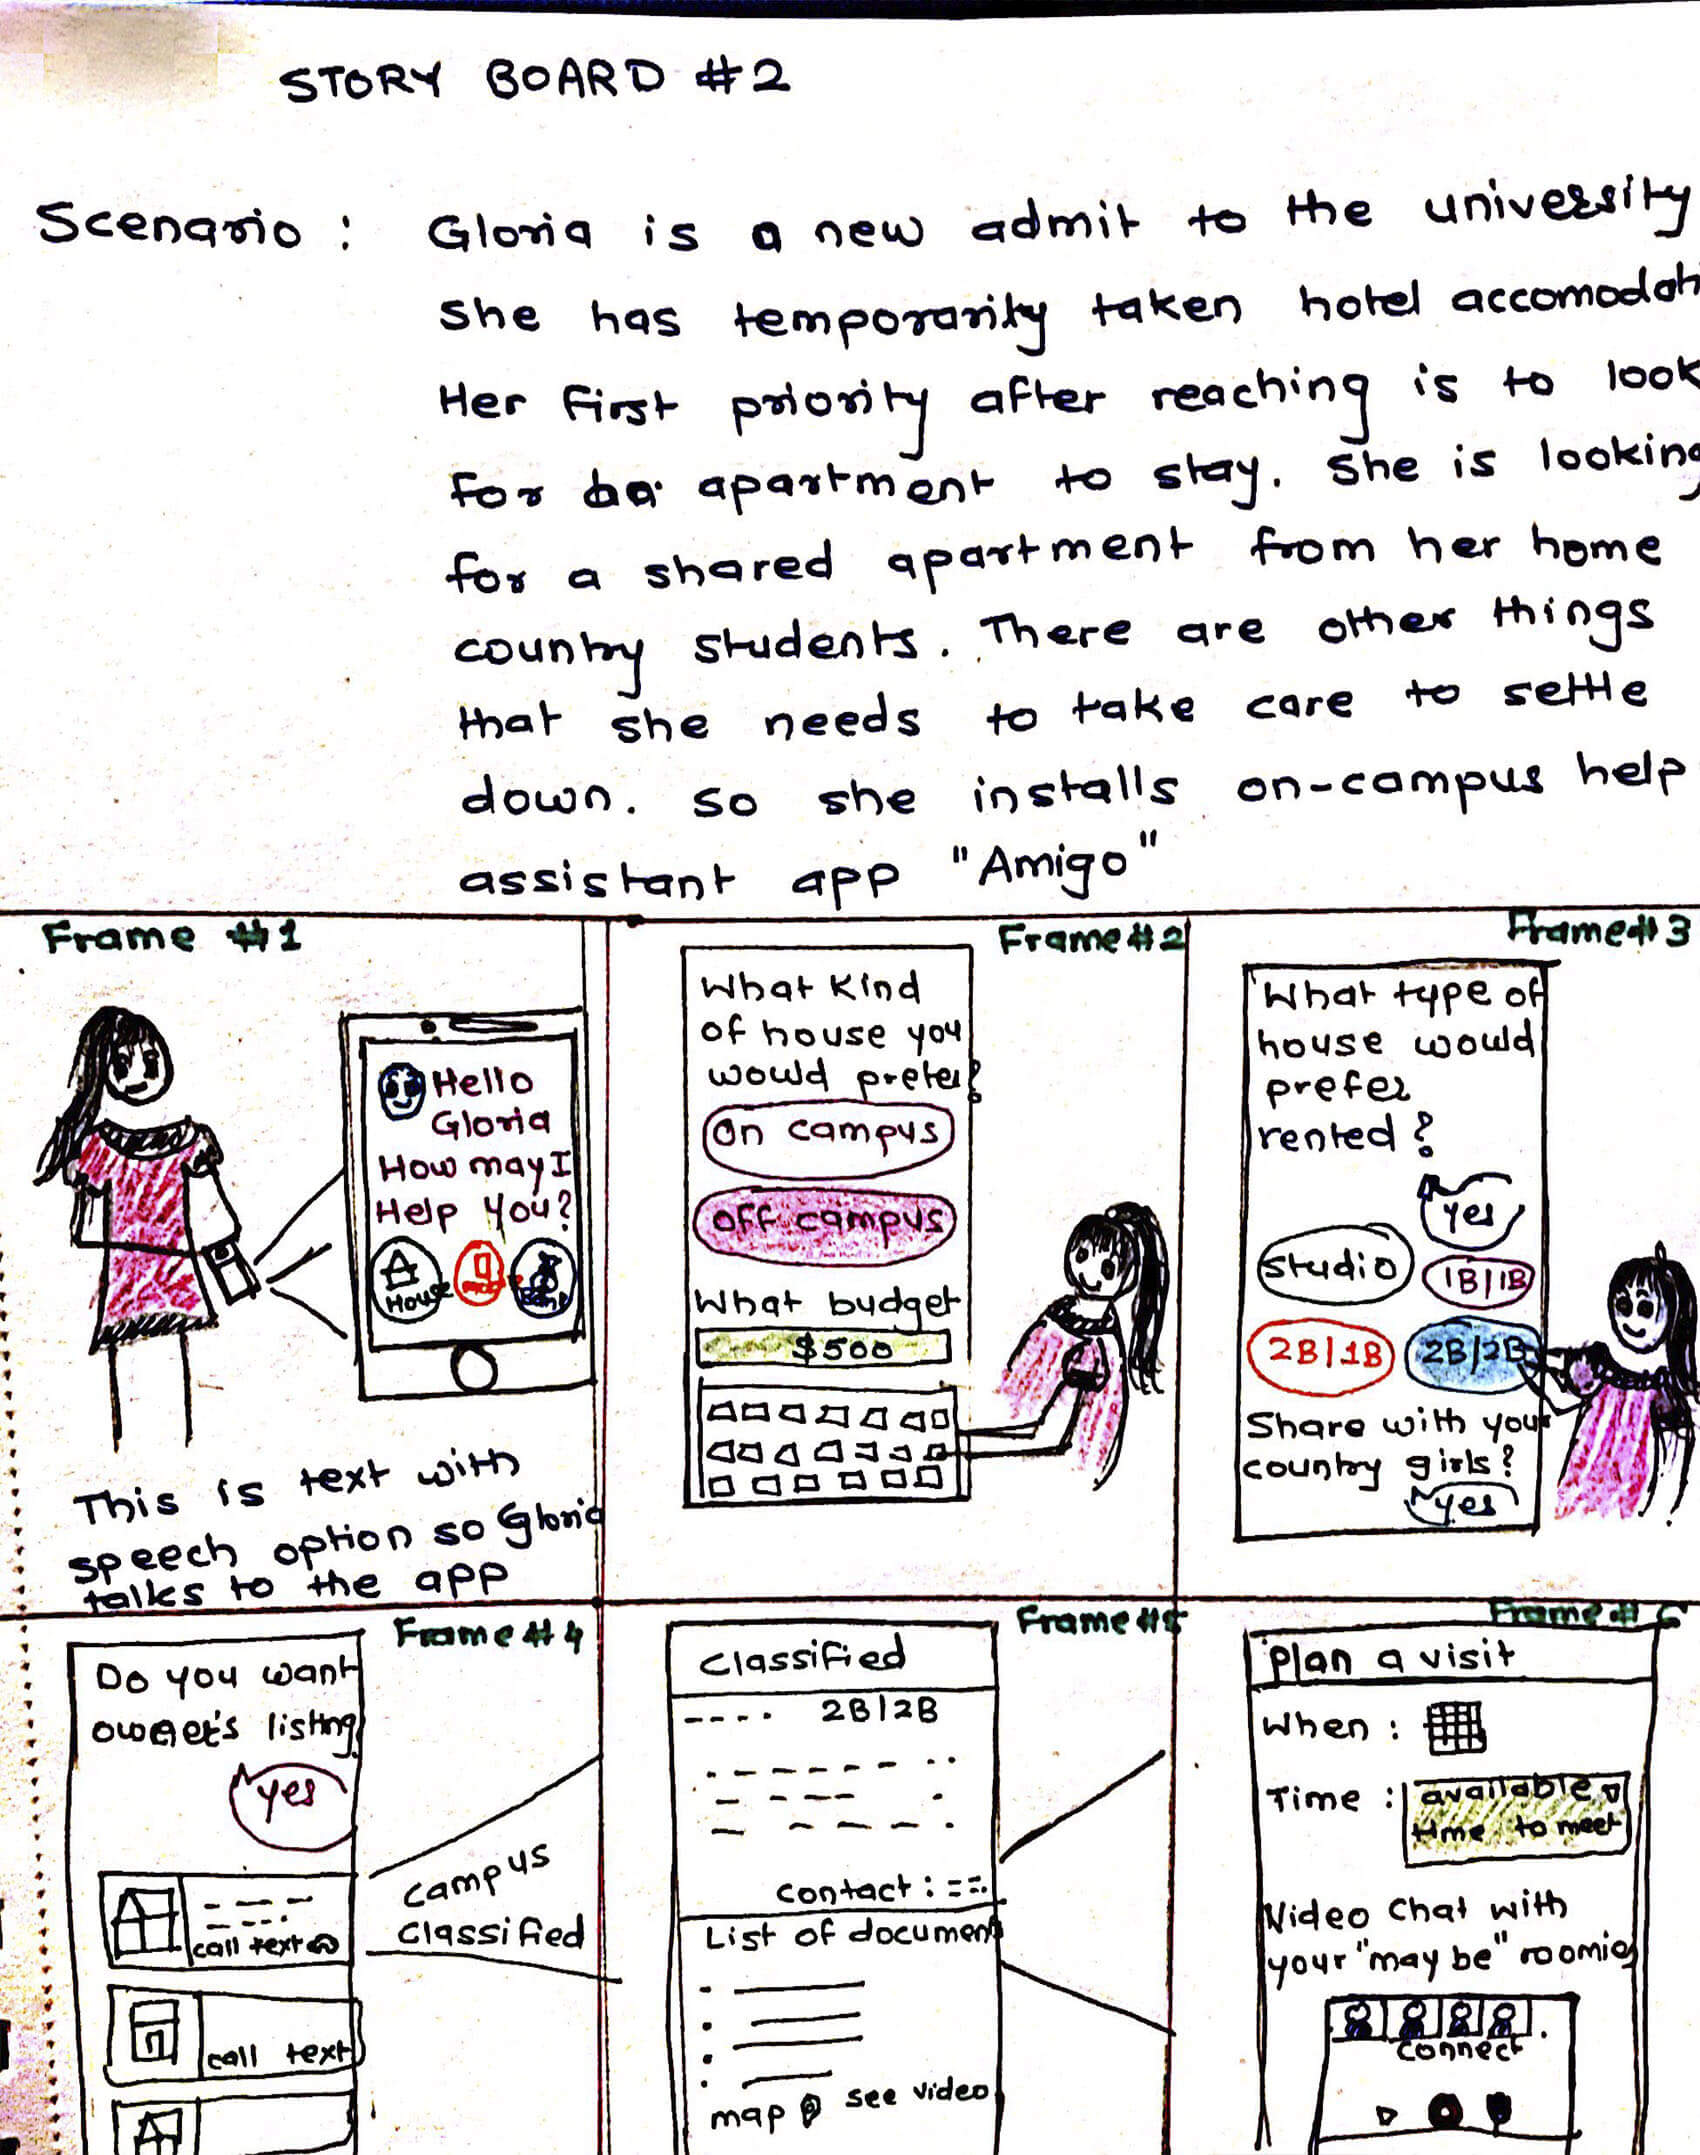 STORY BOARD #2
Scenario : Gloria is a new admit to the university
She has temporarily taken hotel accomodati
Her first priority after reaching is to look
for a apartment to stay. She is looking
for a shared apartment from her home
country students. There are other things
that she needs to take care to settle
down. So she installs on-campus help
assistant app "Amigo"
Frame #1
Hello
Gloria
How may I
Help you?
House
This is text with
speech option so Gloria
talks to the app
Frame #2
What kind
of house you
would prefer?
on campus
off campus
What budget
$500
Frame #3
What type of
house would
prefer
rented?
yes
studio
1B|1B
2B|1B
2B/2B
Share with your
country girls?
yes
Frame #4
Do you want
owner's listing
yes
call text
call text
campus
classified
Frame #5
Classified
2B|2B
contact :
List of document
map see video
Frame # 6
Plan a visit
When :
Time : available
time to meet
Video Chat with
your "may be" roomies
connect